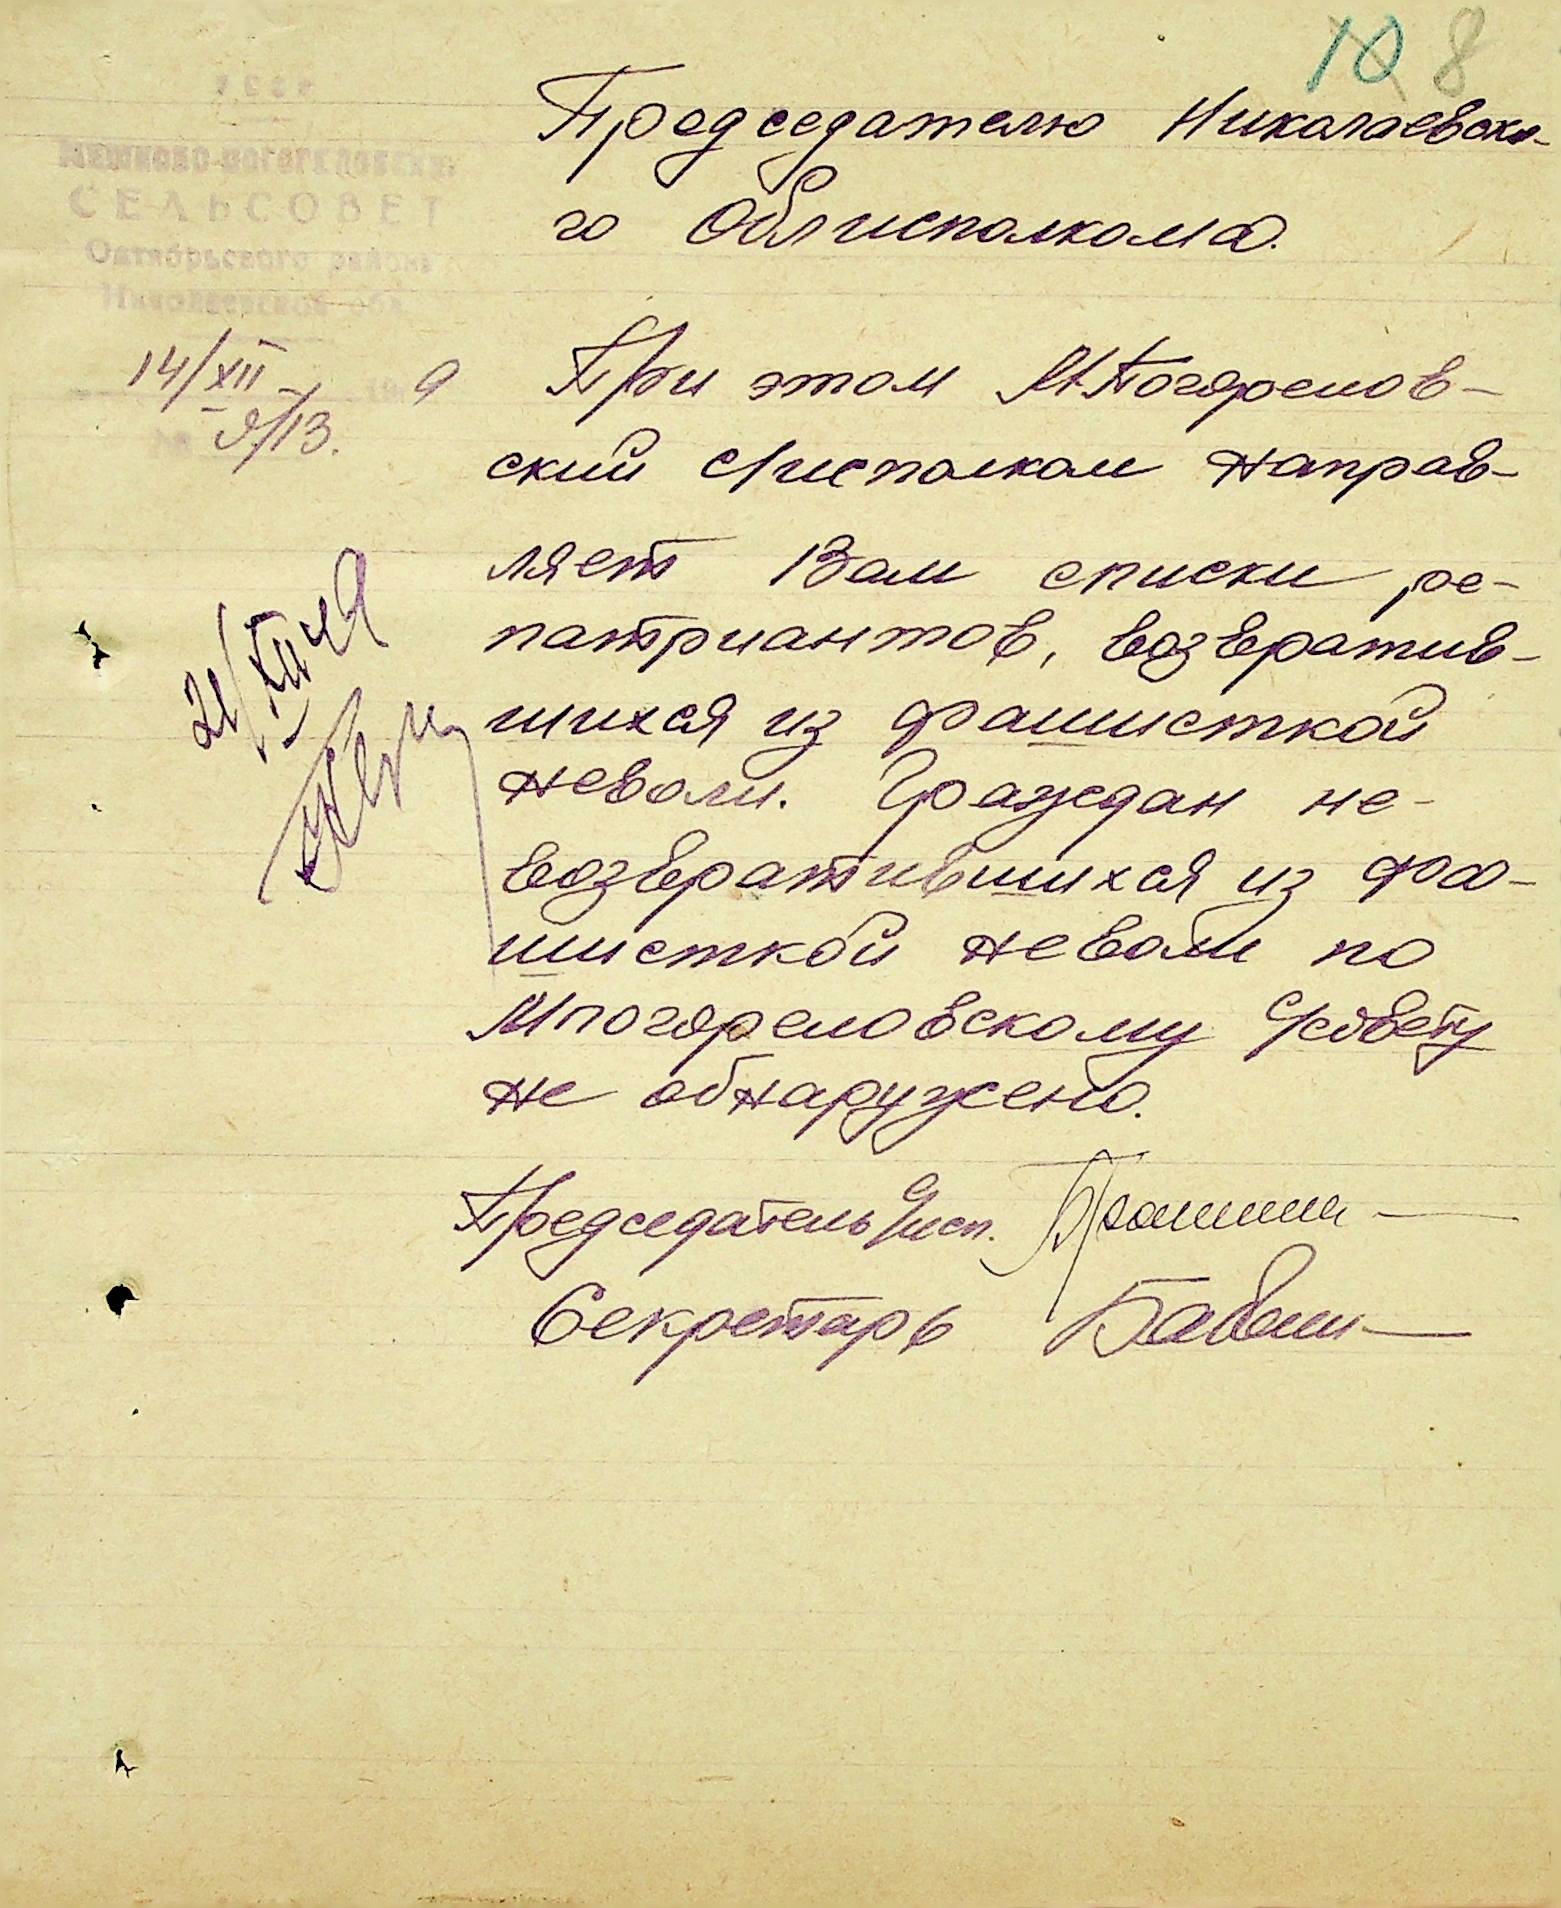 10 8
УССР
МЕШКОВО-ПОГОРЕЛОВСКИЙ
СЕЛЬСОВЕТ
Октябрьского района
Николаевской обл.
14/XII 194 9
№ 9/13.
Председателю Николаевско-
го Облисполкома.
При этом М.Погорелов-
ский с/исполком направ-
ляет Вам списки ре-
патриантов, возвратив-
21/XII 49
шихся из фашисткой
неволи. Граждан не-
возвратившихся из фа-
шисткой неволи по
Мпогореловскому с/совету
не обнаружено.
Председатель с/исп.
Секретарь